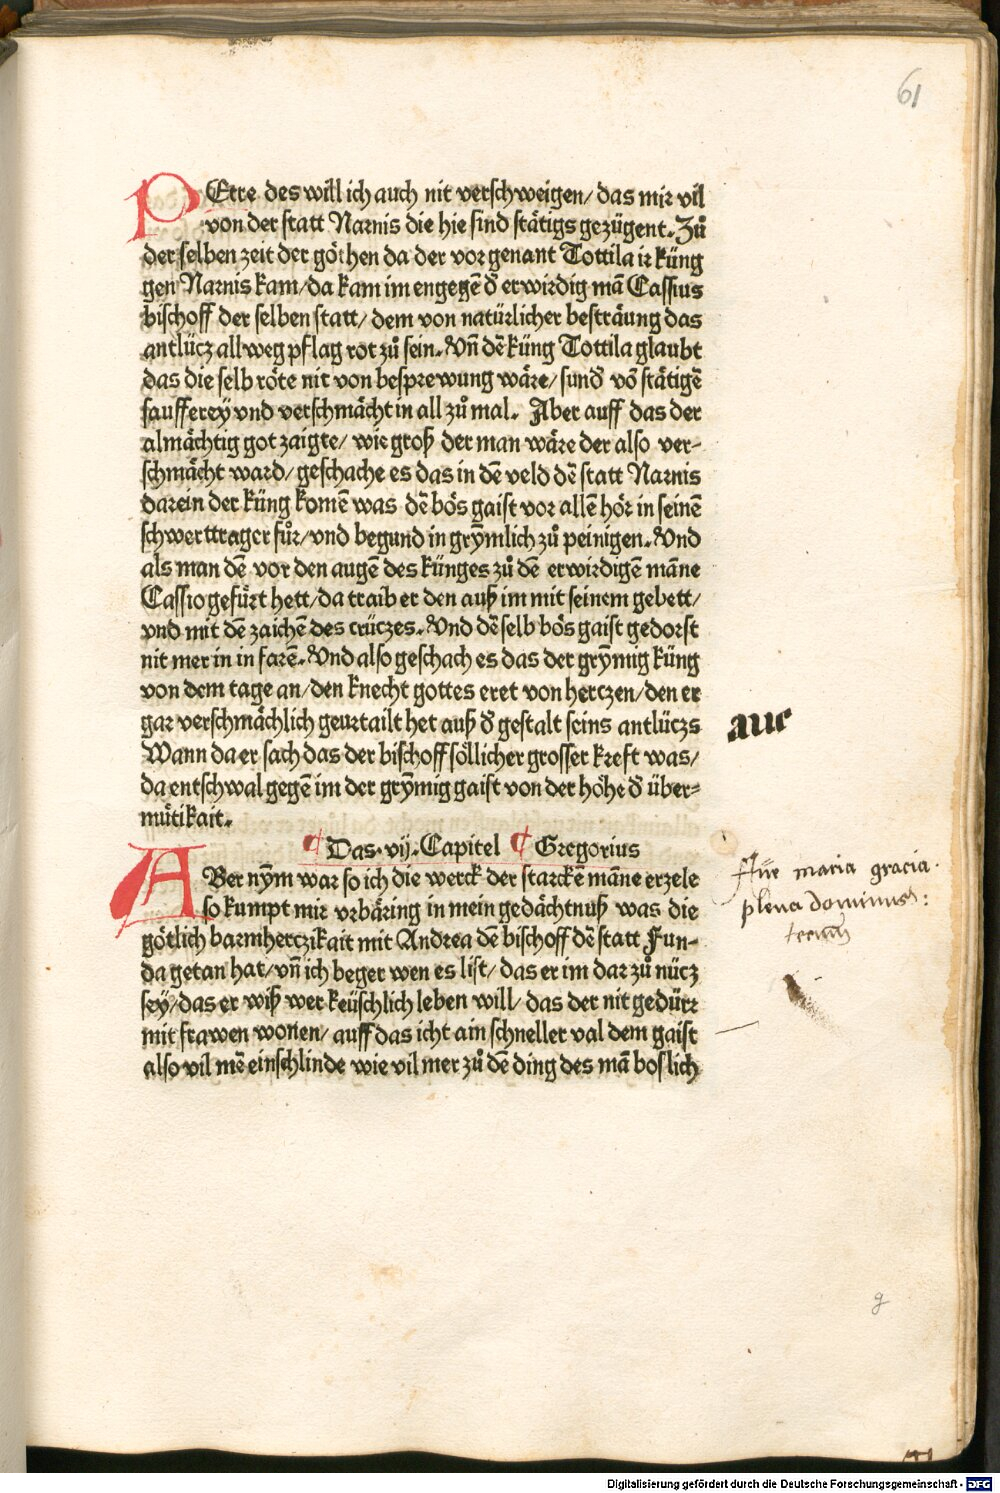 61
PEtre des will ich auch nit verschweigen/ das mir vil
von der statt Narnis die hie sind stätigs gezügent. Zů
der selben zeit der gothen da der vor genant Tottila ir küng
gen Narnis kam/ da kam im engegē d̄ erwirdig mā Cassius
bischoff der selben statt/ dem von natürlicher besträung das
antlücz allweg pflag rot zů sein. Vn̄ dē küng Tottila glaubt
das die selb röte nit von besprewung wäre/ sund̄ vō stätigē
saufferey vnd verschmächt in all zů mal. Aber auff das der
almächtig got zaigte/ wie groß der man wäre der also ver-
schmächt ward/ geschache es das in dē veld dē statt Narnis
darein der küng komē was dē bös gaist vor allē hör in seinē
schwerttrager fůr/ vnd begund in grȳmlich zů peinigen. Vnd
als man dē vor den augē des künges zů dē erwirdigē māne
Cassio gefürt hett/ da traib er den auß im mit seinem gebett/
vnd mit dē zaichē des crüczes. Vnd dē selb bös gaist gedorst
nit mer in in farē. Vnd also geschach es das der grȳmig küng
von dem tage an/ den knecht gottes eret von herczen/ den er
gar verschmächlich geurtailt het auß d̄ gestalt seins antlüczs
Wann da er sach das der bischoff söllicher grosser kreft was/
da entschwal gegē im der grȳmig gaist von der höhe d̄ über-
mütikait.
aue
¶ Das .vij. Capitel ¶ Gregorius
ABer nȳm war so ich die werck der starckē māne erzele
so kumpt mir vrbäring in mein gedächtnuß was die
götlich barmherczikait mit Andrea dē bischoff dē statt Fun-
da getan hat/ vn̄ ich beger wen es list/ das er im dar zů nücz
sey/ das er wiß wer keüschlich leben will/ das der nit gedürr
mit frawen wonen/ auff das icht ain schneller val dem gaist
also vil mē einschlinde wie vil mer zů dē ding des mā boslich
Aue maria gracia.
plena dominus:
tecum
g
Digitalisierung gefördert durch die Deutsche Forschungsgemeinschaft - DFG